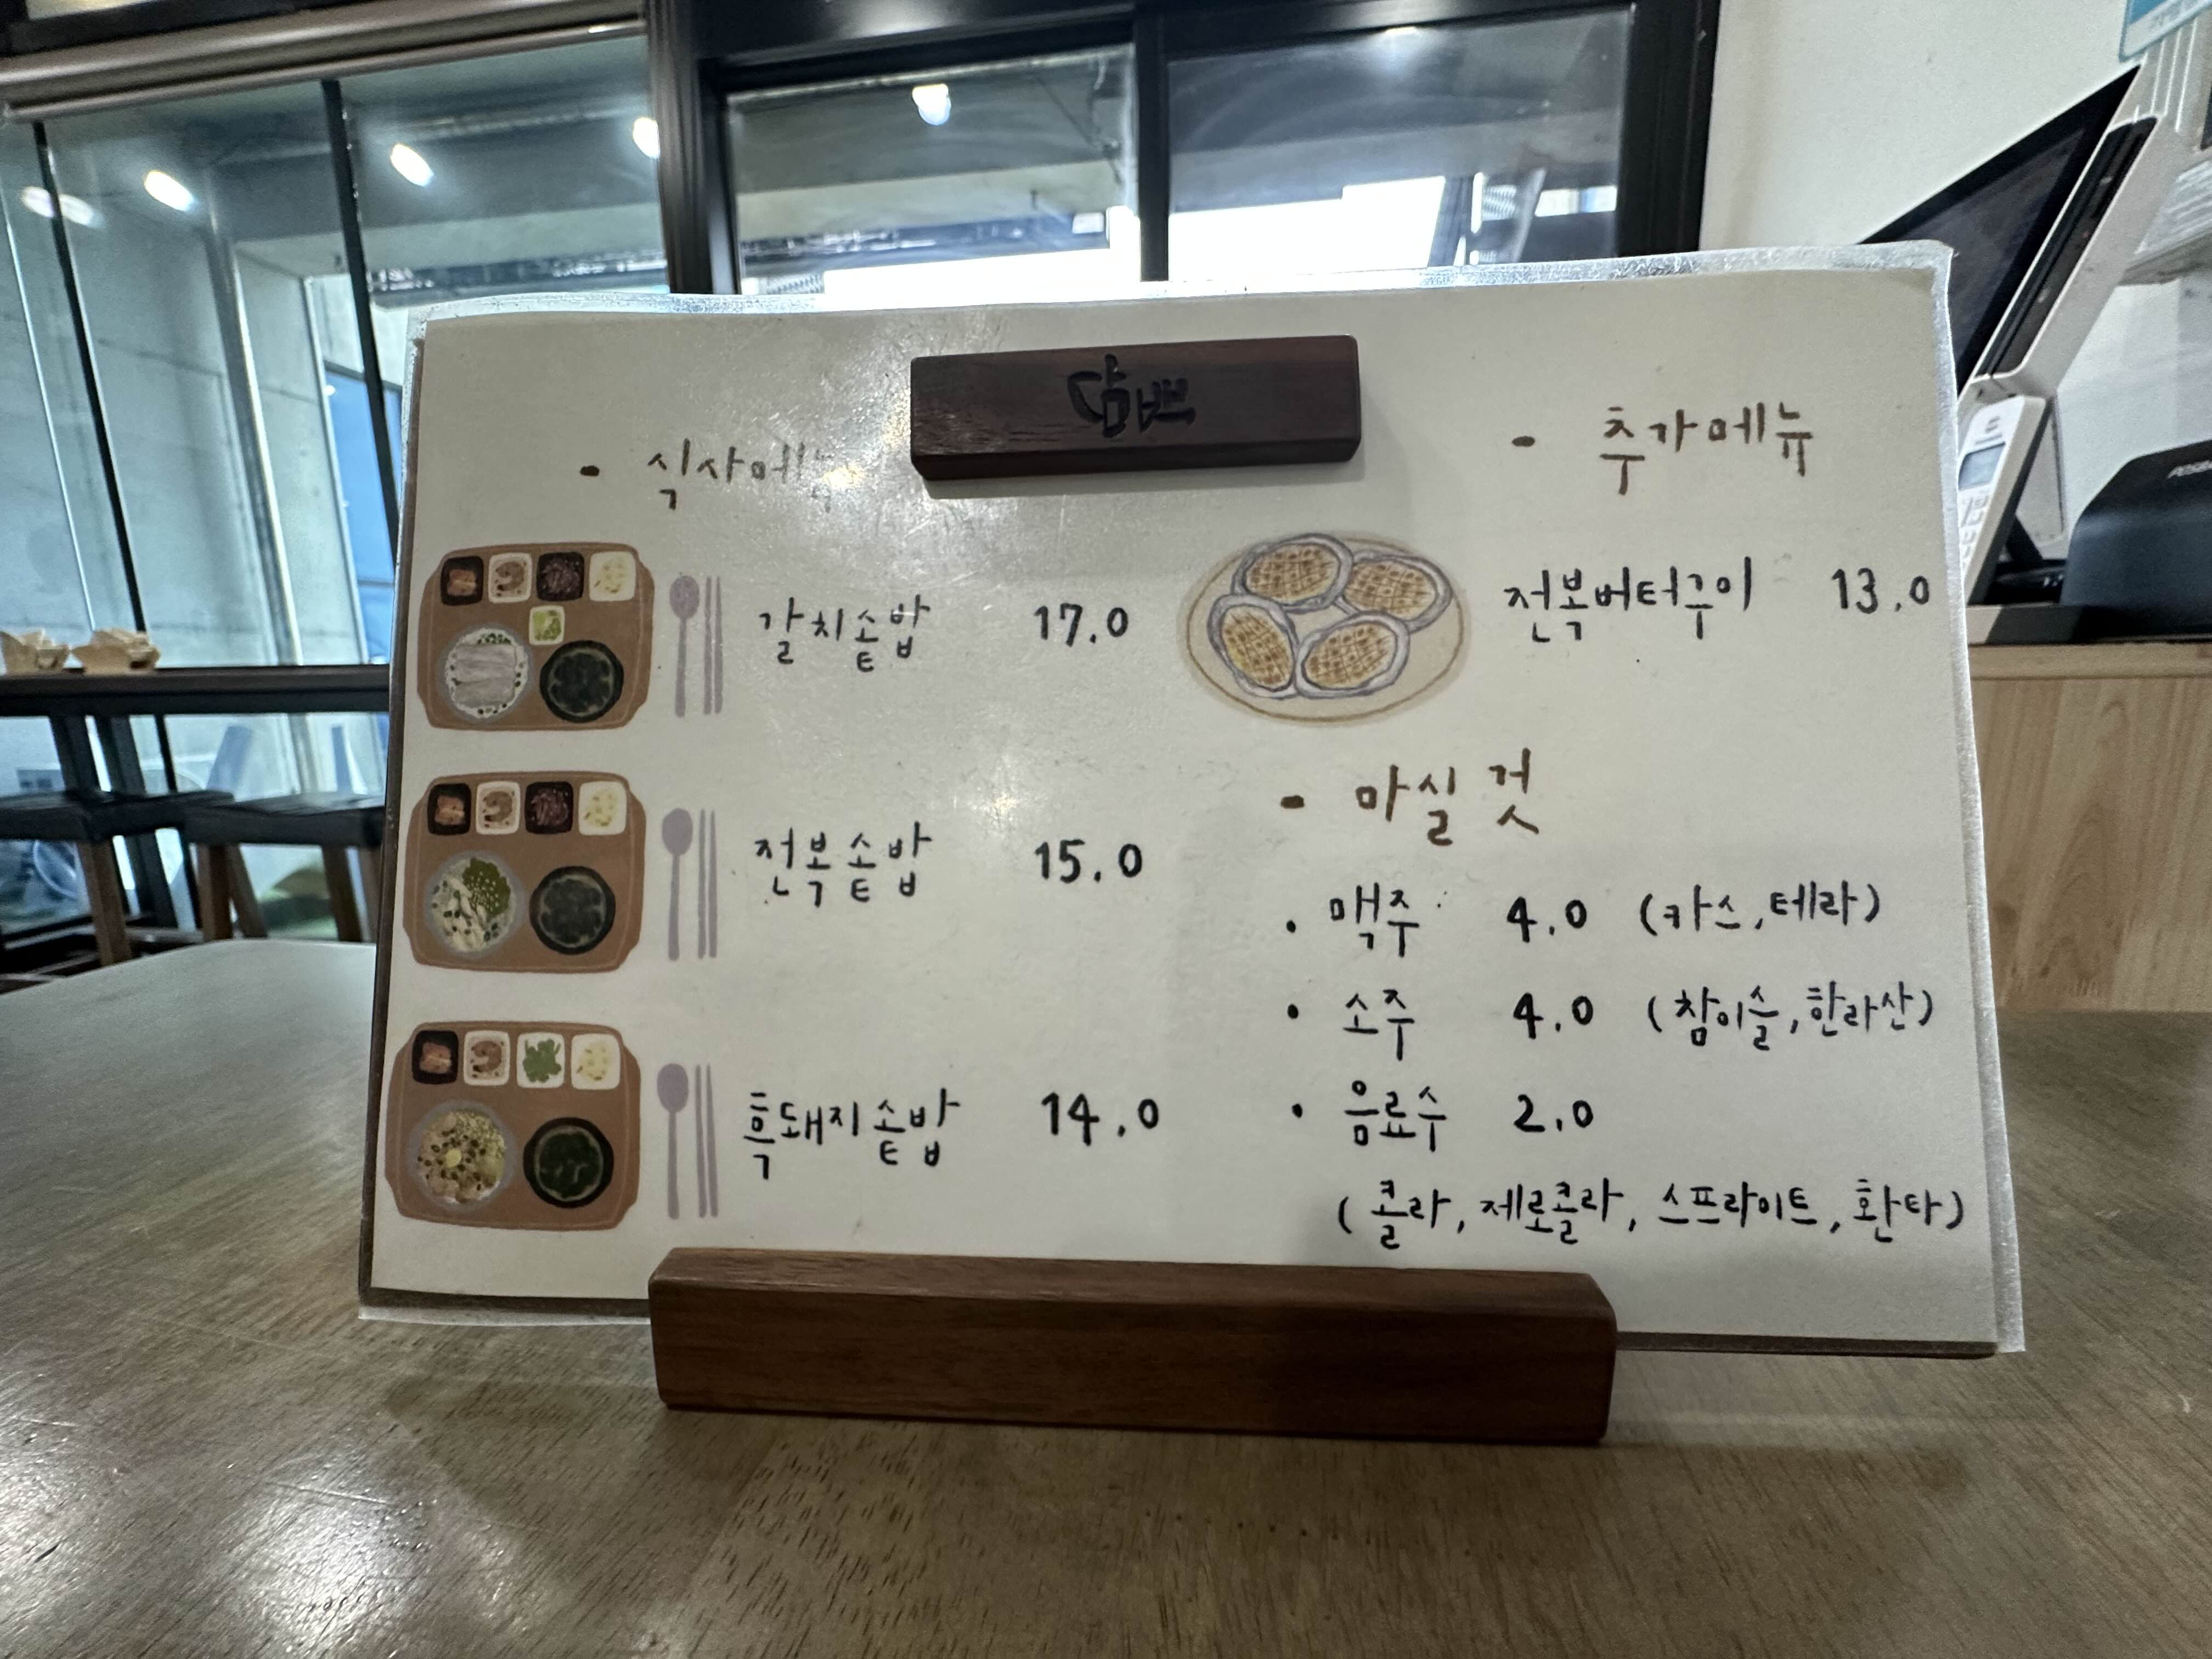 담빡
- 식사메뉴
갈치솥밥 17.0
전복솥밥 15.0
흑돼지솥밥 14.0
- 추가메뉴
전복버터구이 13.0
- 마실 것
• 맥주 4.0 (카스, 테라)
• 소주 4.0 (참이슬, 한라산)
• 음료수 2.0
(콜라, 제로콜라, 스프라이트, 환타)